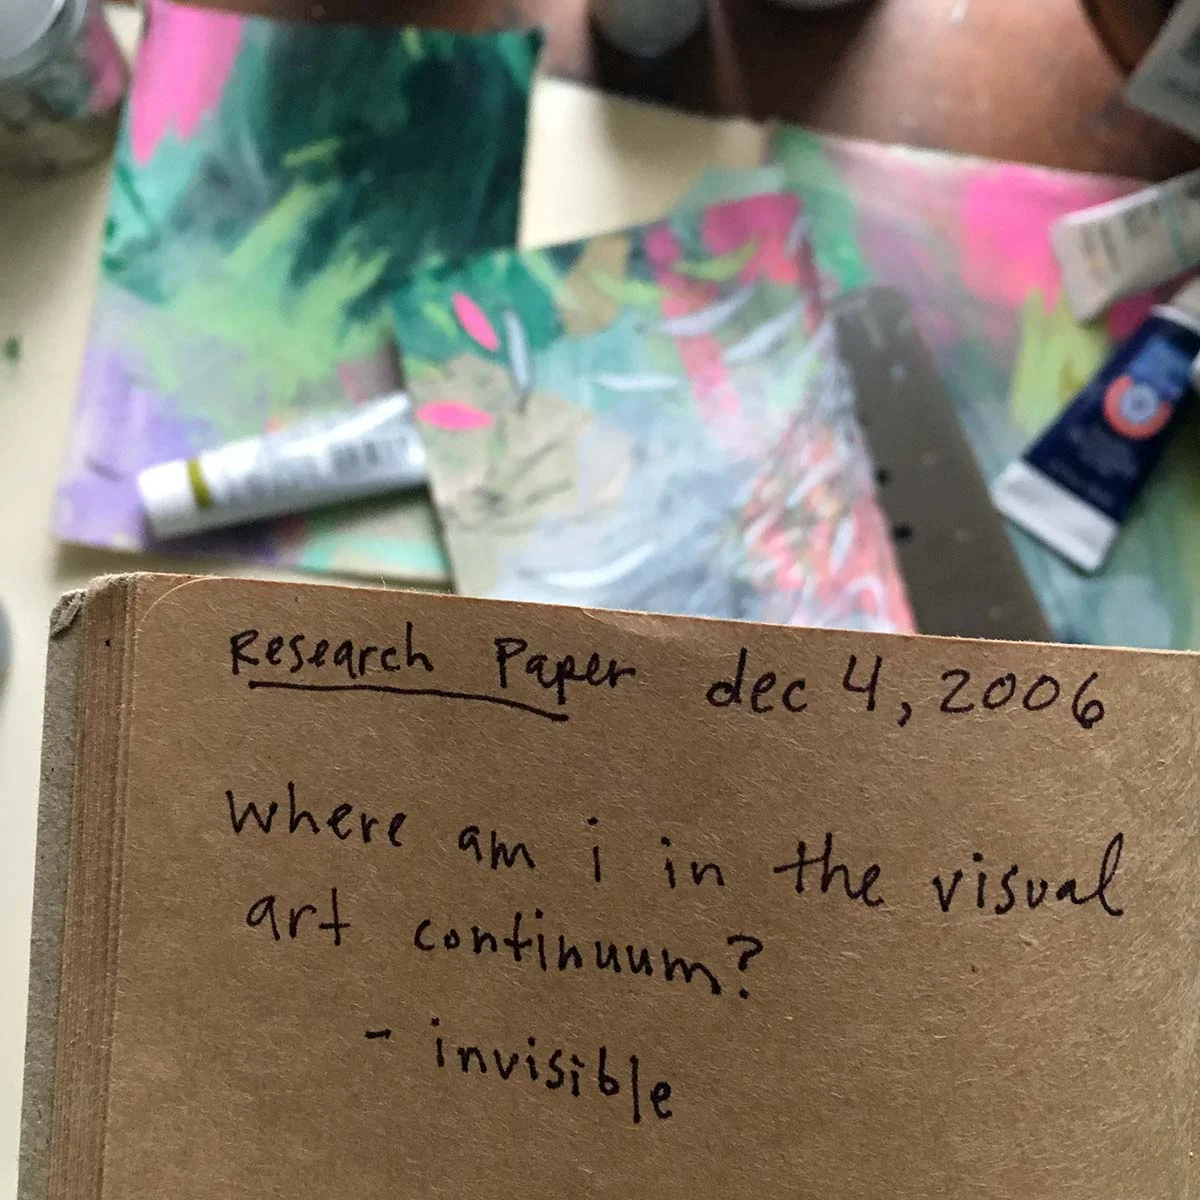 Research Paper dec 4, 2006
where am i in the visual
art continuum?
- invisible